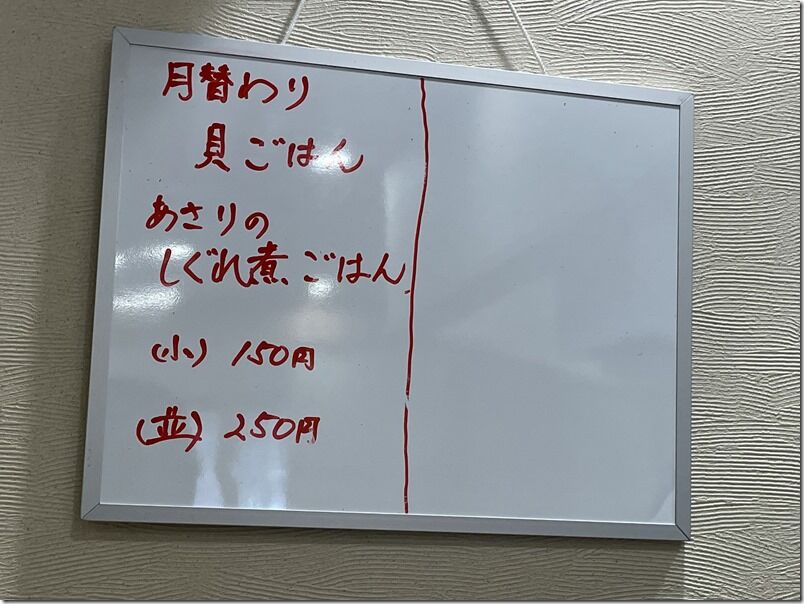 月替わり
貝ごはん
あさりの
しぐれ煮ごはん
(小) 150円
(並) 250円